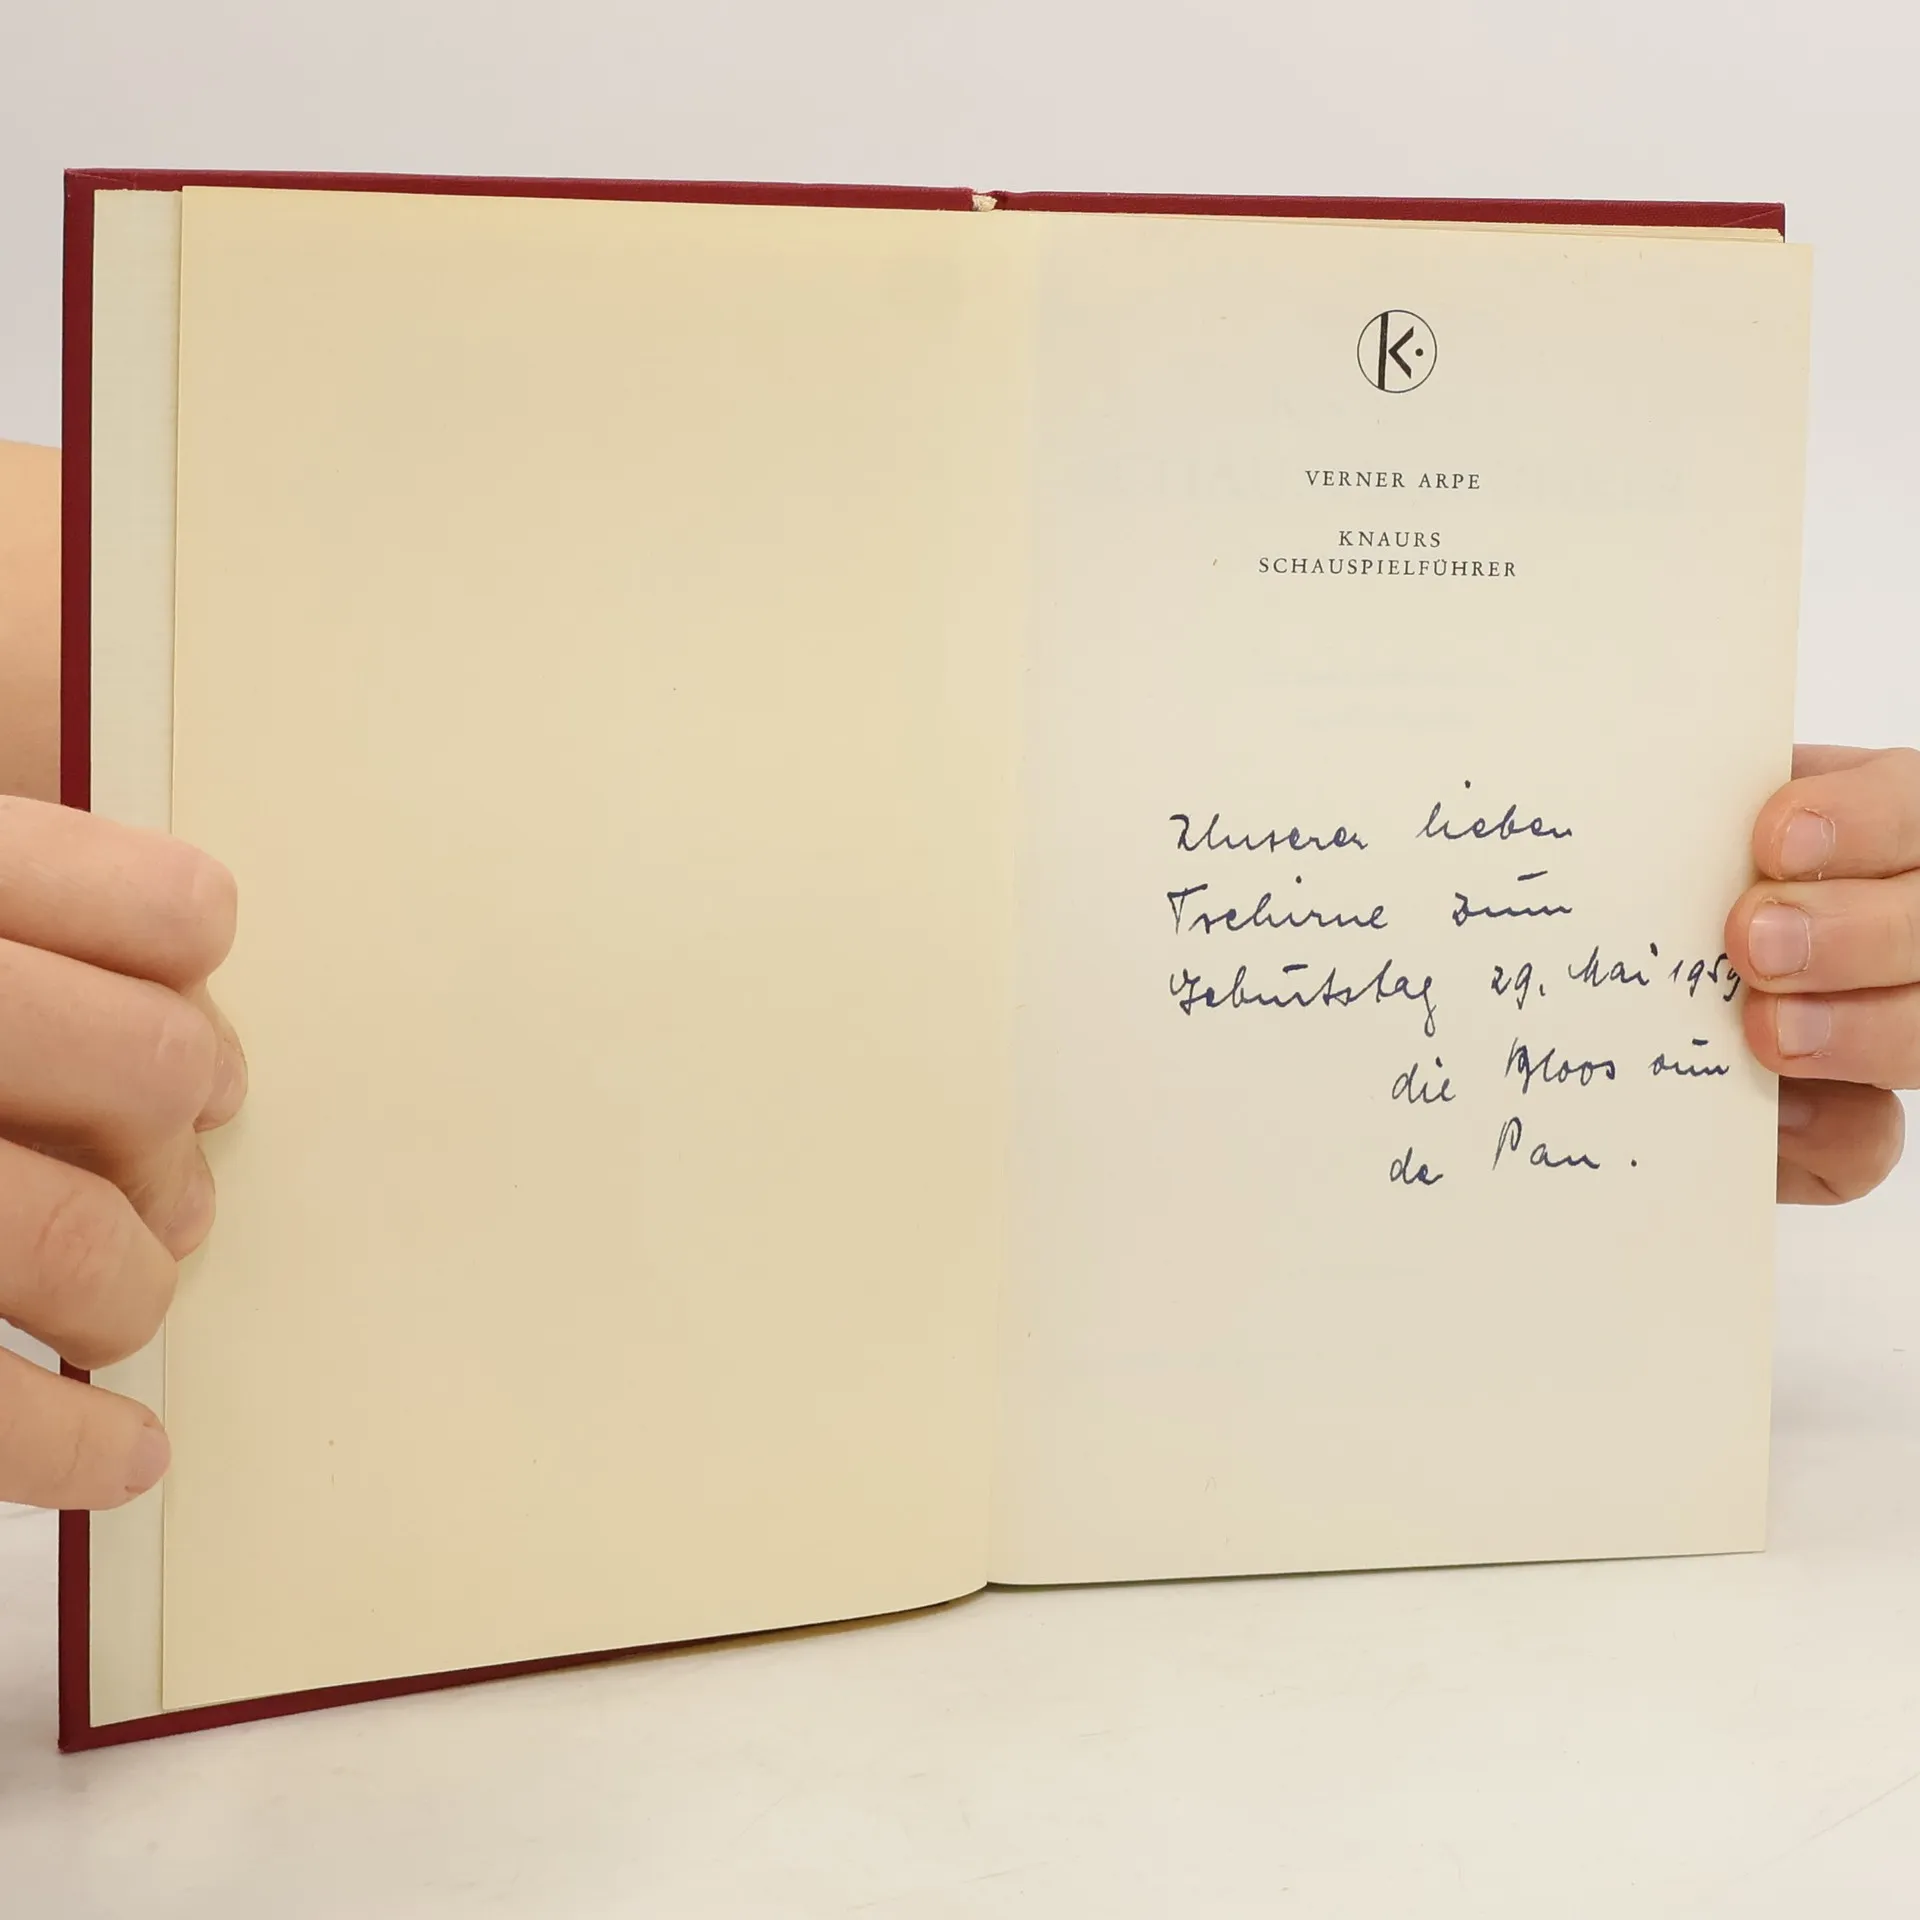 K.
VERNER ARPE
KNAURS
SCHAUSPIELFÜHRER
Unserer lieben
Tschirne zum
Geburtstag 29. Mai 1959
die
de Pan.